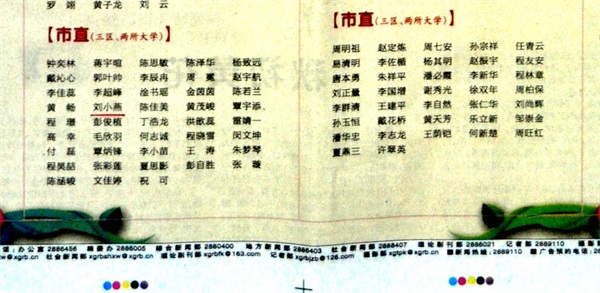 罗 翊 黄子龙 刘 云
【市直(三区、两所大学)】
钟奕林 蒋宇暄 陈思敏 陈泽华 杨致远
戴沁心 郭叶帅 李辰冉 周 胤 赵宇航
李佳蕊 李超峰 涂书瑶 金茵茵 陈若兰
黄 畅 刘小燕 陈佳美 黄茂峻 覃宇添
程 璟 彭俊植 丁浩龙 洪歆蕊 雷靖一
高 幸 毛欣羽 何志诚 程晓雪 闵文坤
付 磊 覃炳锋 李小苗 王 涛 朱梦琴
程昊喆 张彩莲 夏思影 彭自胜 张 璇
陈涵峻 文佳婷 祝 可
【市直(三区、两所大学)】
周明祖 赵定炼 周七安 孙宗祥 任青云
易清明 李佐楯 杨其明 赵振宇 程友安
唐本勇 朱祥平 潘必顺 李新华 程林章
刘正量 李国增 谢秀光 徐双年 周柏保
李群清 王建平 李自然 张仁华 刘尚辉
孙玉恒 戴花桥 黄天芳 乐立新 邹崇金
潘华忠 李志龙 王荫铠 何新楚 周旺红
夏燕三 许翠英
办公室 2886456 编委办 2886005 综合新闻部 2880400 地方新闻部 2886403 社会新闻部 2888407 理论副刊部 2886021 记者部 2889110
xgrb.cn 社会新闻部 xgrbshxw@xgrb.cn 理论副刊部 xgrbfk@163.com 记者部 xgrbjzb@126.com 摄影部 xgtpk@xgrb.cn 新闻热线:2889110